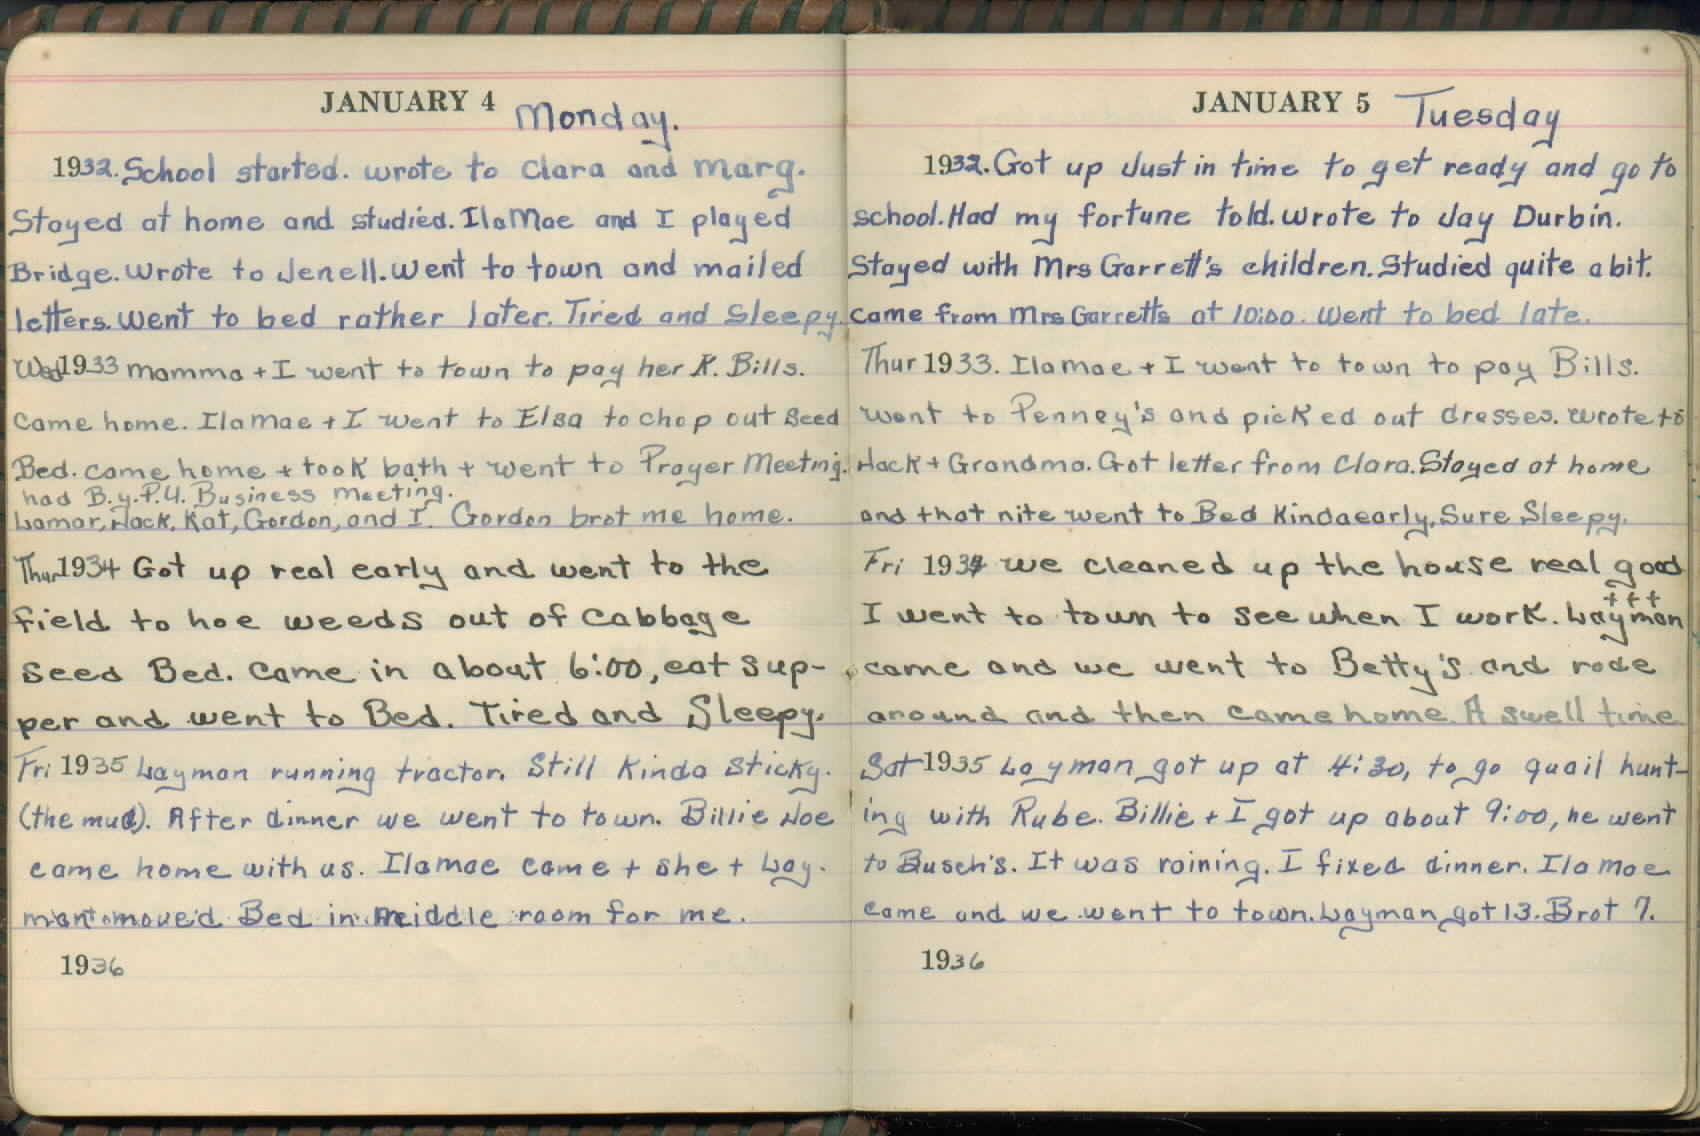 JANUARY 4 Monday.
1932. School started. wrote to Clara and Marg.
Stayed at home and studied. IlaMae and I played
Bridge. Wrote to Jenell. Went to town and mailed
letters. Went to bed rather later. Tired and Sleepy.
Wed 1933 momma + I went to town to pay her R. Bills.
Came home. Ilamae + I went to Elsa to chop out seed
Bed. came home + took bath + went to Prayer Meeting.
had B.Y.P.U. Business meeting.
Lamar, Jack, Kat, Gordon, and I. Gordon brot me home.
Thur 1934 Got up real early and went to the
field to hoe weeds out of Cabbage
seed Bed. Came in about 6:00, eat sup-
per and went to Bed. Tired and Sleepy.
Fri 1935 Layman running tractor. Still Kinda Sticky.
(the mud). After dinner we went to town. Billie Joe
came home with us. Ilamae came + she + Lay-
man moved Bed in middle room for me.
1936
JANUARY 5 Tuesday
1932. Got up Just in time to get ready and go to
school. Had my fortune told. Wrote to Jay Durbin.
Stayed with Mrs Garrett's children. Studied quite a bit.
came from Mrs Garretts at 10:00. Went to bed late.
Thur 1933. Ilamae + I went to town to pay Bills.
went to Penney's and picked out dresses. Wrote to
Jack + Grandma. Got letter from Clara. Stayed at home
and that nite went to Bed Kindaearly. Sure Sleepy.
Fri 1934 we cleaned up the house real good
I went to town to see when I work. Layman +++
came and we went to Betty's and rode
around and then came home. A swell time
Sat 1935 Layman got up at 4:30, to go quail hunt-
ing with Rube. Billie + I got up about 9:00, he went
to Busch's. It was raining. I fixed dinner. Ila Mae
came and we went to town. Layman got 13. Brot 7.
1936